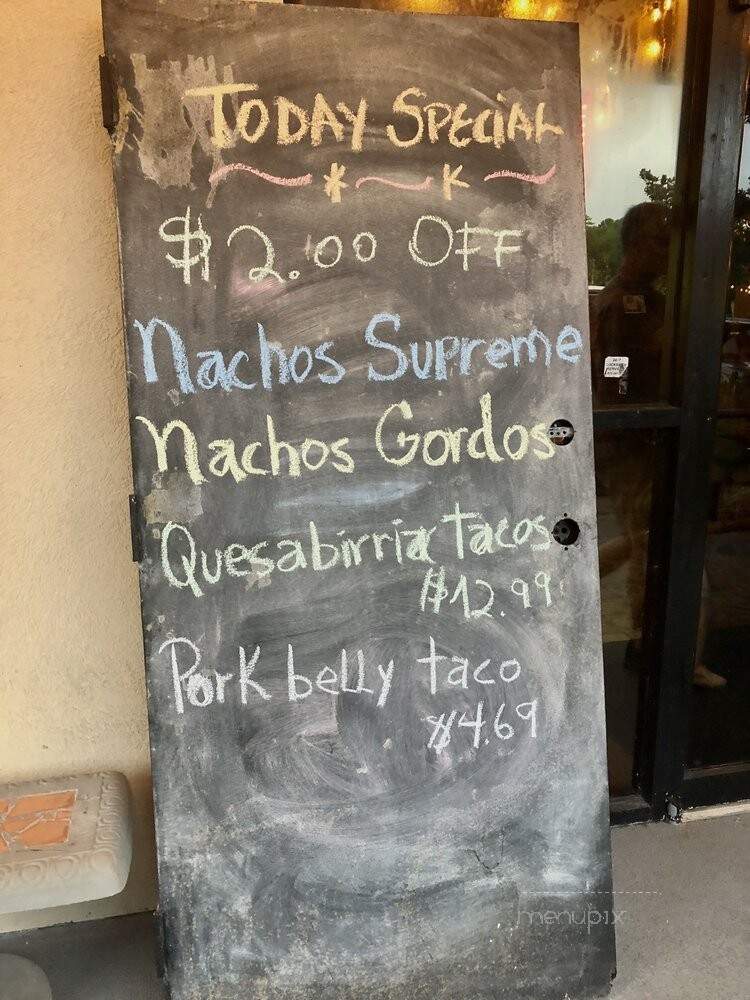 TODAY SPECIAL
$2.00 OFF
Nachos Supreme
Nachos Gordos
Quesabirria tacos
$12.99
Pork belly taco
$4.69
menupix